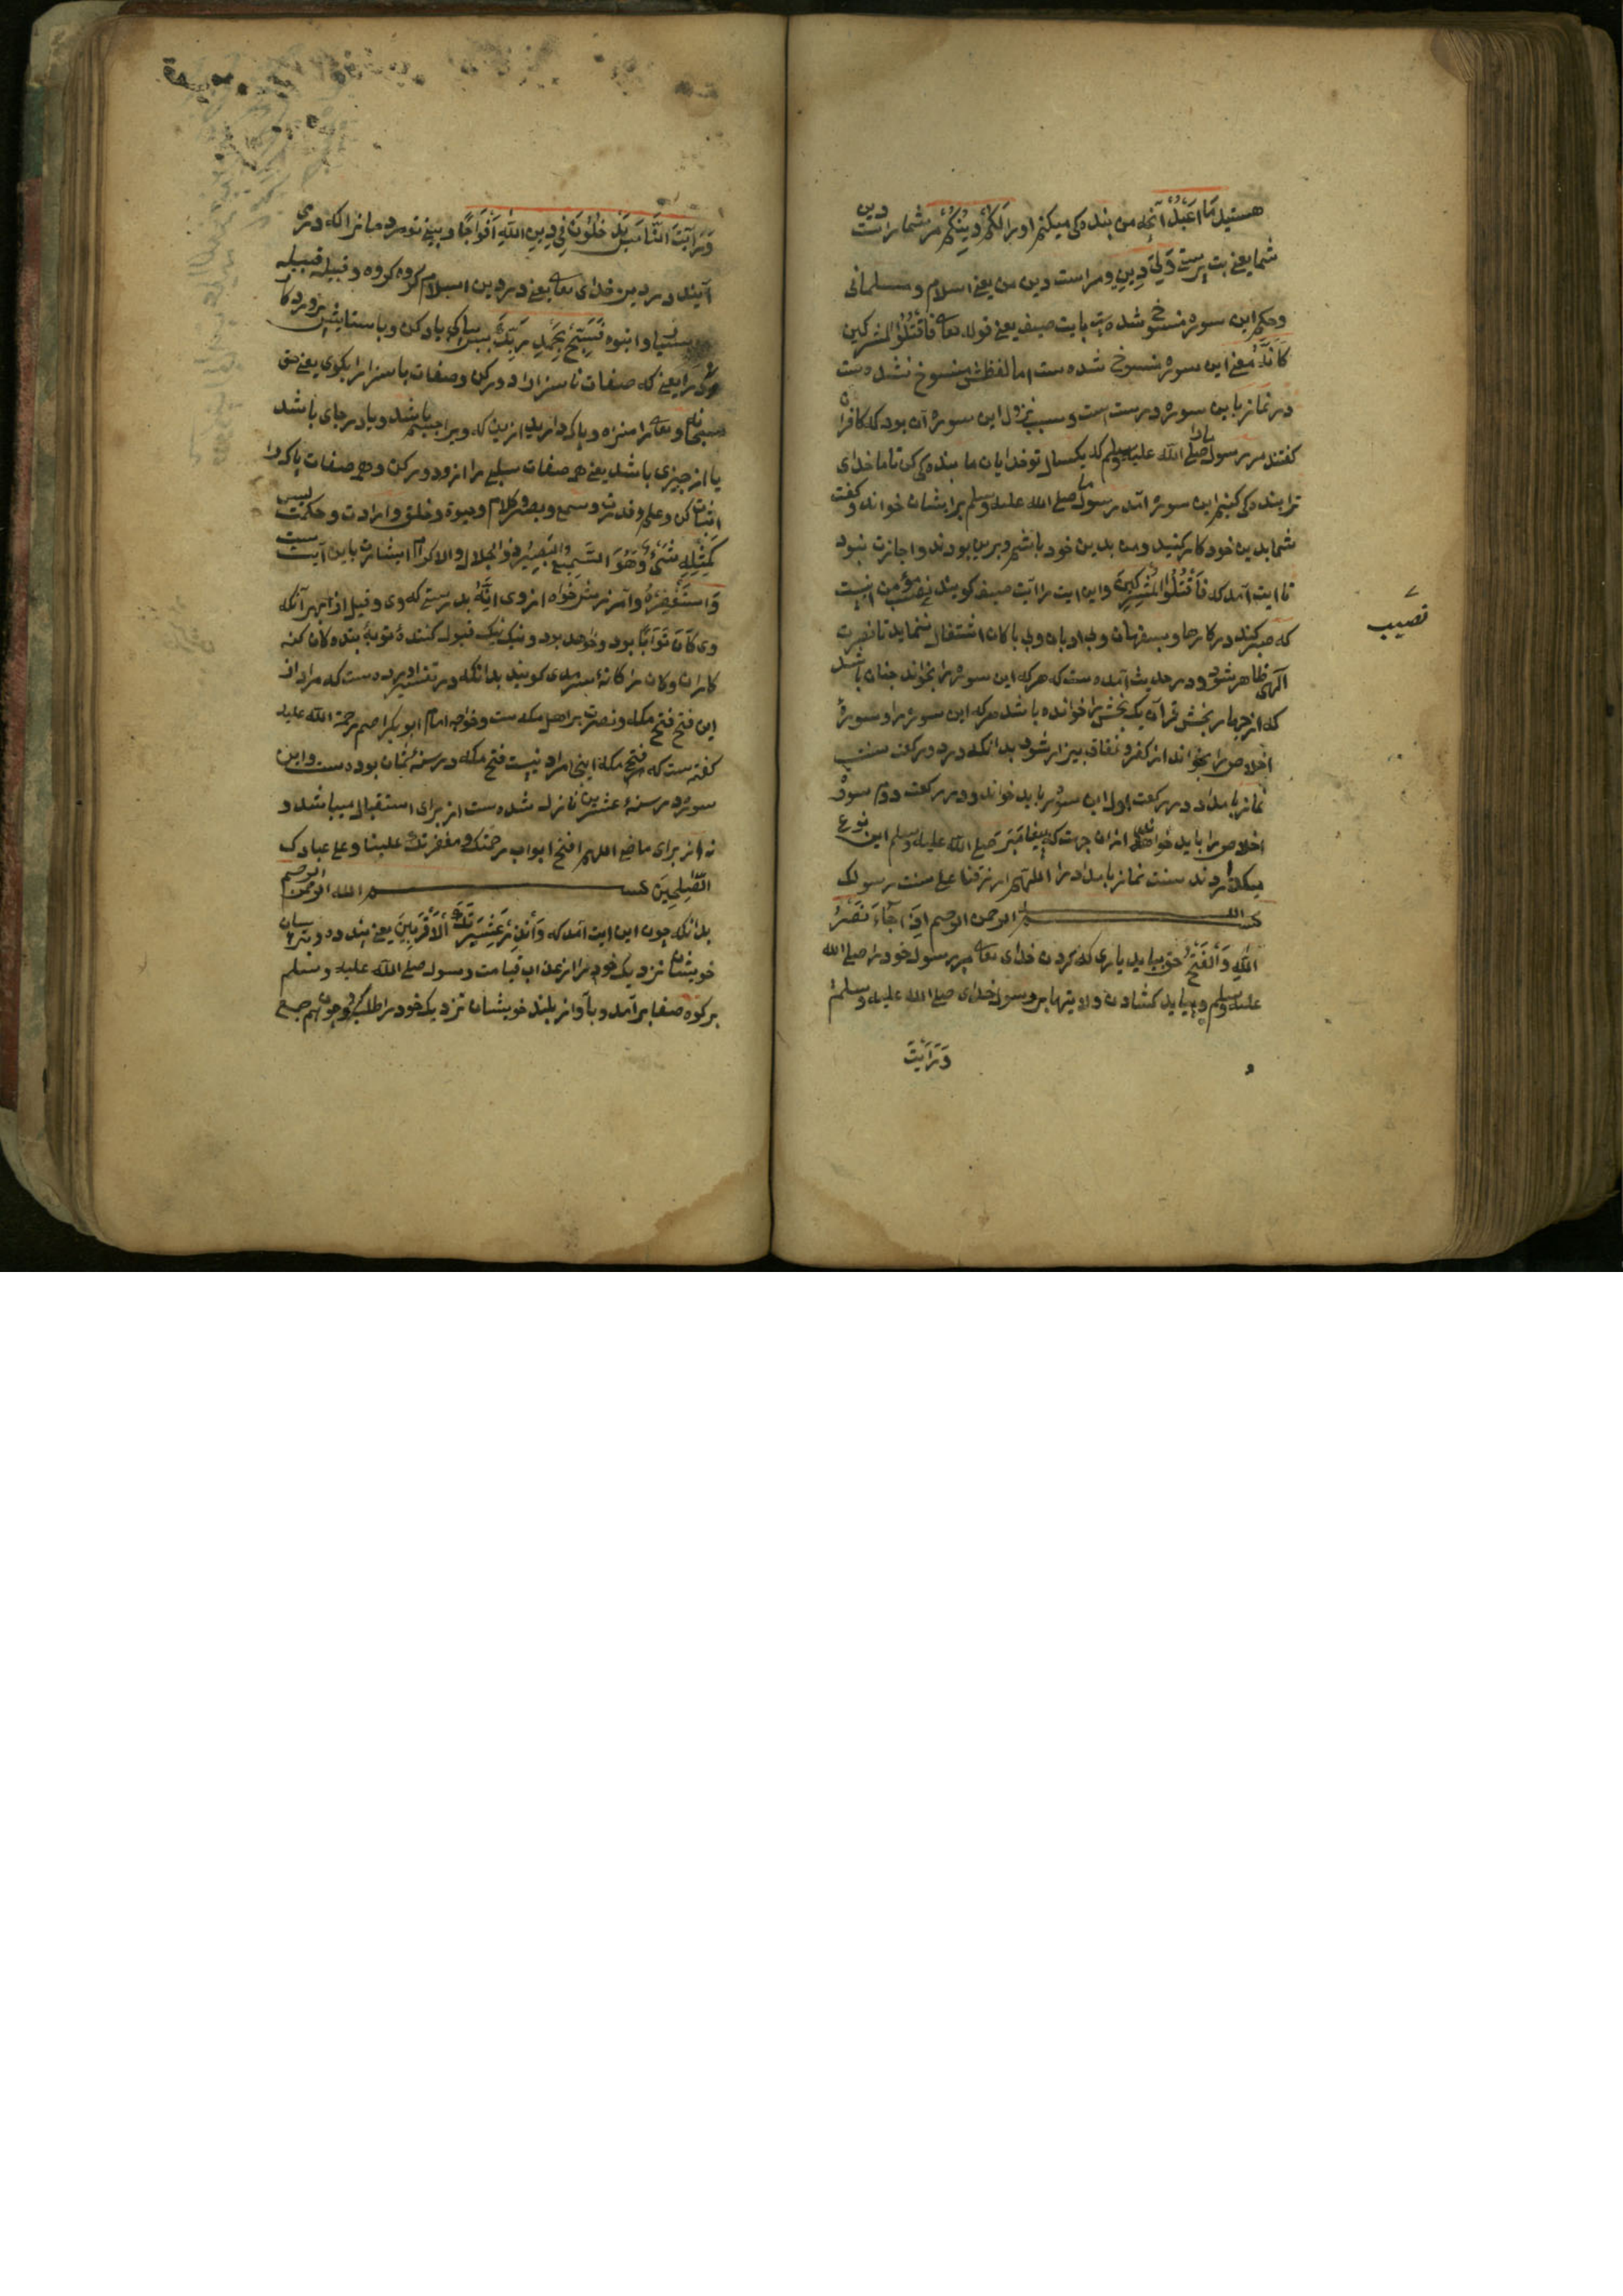 هستید مَا اَعْبُدُ آنچه من بنده کی میکنم اورا لَکُمْ دِینُکُمْ مر شما راست دین
شما یعنی بت پرستی وَلِیَ دِینِ ومراست دین من یعنی اسلام ومسلمانی
وحکم این سوره منسوخ شده است بایت صیف یعنی قوله تعالی فَاقْتُلُوا الْمُشْرِکِینَ
کَافَّةً معنی این سوره منسوخ شده ست اما لفظش منسوخ نشده ست
در نماز باین سوره درست است وسبب نزول این سوره آن بود که کافران
کفتند مر رسول صلی الله علیه وسلم که یکسال تو خدایان ما بنده کی کن تا ما خدای
ترا بنده کی کنیم این سوره آمد رسول صلی الله علیه وسلم بر ایشان خواند وکفت
شما بدین خود کار کنید ومن بدین خود باشم وبرین بودند واجازت نبود
تا ایت آمد که فَاقْتُلُوا الْمُشْرِکِینَ واین ایت را آیت صیف کویند نصیب مؤمن انیست
که صبر کند در کارها وبسفیهان وبی ادبان وبی باکان اشتغال ننماید تا نصرت
آلهی ظاهر شود ودر حدیث آمده ست که هرکه این سوره را بخواند چنان باشد
که از چهار بخش قرآن یک بخش را خوانده باشد هرکه این سوره را وسورهٔ
اخلاص را بخواند از کفر ونفاق بیزار شود بدانکه در دو رکعت سنت
نماز بامداد در رکعت اول این سوره باید خواند ودر رکعت دوم سورهٔ
اخلاص را باید خواند از ان جهت که پیغامبر صلی الله علیه وسلم این نوع
میکذاردند سنت نماز بامداد را اللهم ارزقنا علی سنت رسولک
بسم الله الرحمن الرحیم اِذَا جَآءَ نَصْرُ
اللّٰهِ وَالْفَتْحُ چون بیاید یاری که کردن خدای تعالی مر رسول خود را صلی الله
علیه وسلم وبیاید کشادن ولایتها بر رسول خدای صلی الله علیه وسلم
وَرَاَیْتَ
نصیب
وَرَاَیْتَ النَّاسَ یَدْخُلُوْنَ فِی دِینِ اللّٰهِ اَفْوَاجًا وبینی تو مردمانرا که در می
آیند در دین خدای تعالی یعنی در دین اسلام کروه کروه وقبیله قبیله
بسیار وانبوه فَسَبِّحْ بِحَمْدِ رَبِّکَ ببپاکی یاد کن وباستایش پروردکار
خود را یعنی که صفات ناسزا را دور کن وصفات باسزا را بکوی یعنی حق
سبحانه وتعالی را منزه وپاک دارید ازین که ویرا جسم باشد ویا در جای باشد
یا از چیزی باشد یعنی همه صفات سلبی را ازو دور کن وهمه صفات پاک را
اثبات کن وعلم وقدرت وسمع وبصر وکلام وحیوة وخلق وارادت وحکمت لیس
کَمِثْلِهِ شَیْءٌ وَهُوَ السَّمِیعُ الْبَصِیرُ ذو الجلال والاکرام اشارت باین آیت ست
وَاسْتَغْفِرْهُ وآمرزش خواه از وی اِنَّهُ بدرستی که وی وقیل از بهر آنکه
وی کَانَ تَوَّابًا بود وخواهد بود ونیک نیک قبول کنندهٔ توبهٔ بنده کان کنه
کاران وکان را کانهٔ سرمدی کویند بدانکه در تفسیر آورده ست که مراد از
این فتح فتح مکه ونصرت بر اهل مکه ست وخواجه امام ابو بکر اصم رحمة الله علیه
کفته ست که فتح مکه اینجا مراد نیست فتح مکه در سنهٔ ثمان بوده ست واین
سوره در سنهٔ عشرین نازل شده ست از برای استقبال میباشد و
نه از برای ماضی اللهم افتح ابواب رحمتک ومغفرتک علینا وعلی عبادک
الصّٰلِحِیْنَ بسم الله الرحمن الرحیم
بدانکه چون این ایت آمد که وَاَنْذِرْ عَشِیرَتَکَ الْاَقْرَبِینَ یعنی پند ده وبترسان
خویشان نزدیک خود را از عذاب قیامت رسول صلی الله علیه وسلم
بر کوه صفا برآمد وبآواز بلند خویشان نزدیک خود را طلب کرد وچون هم جمع